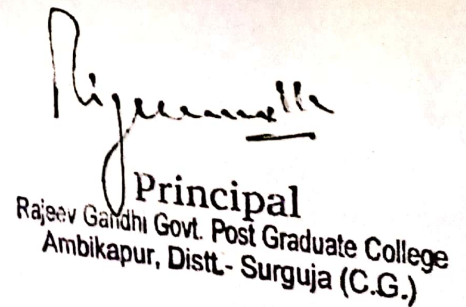 Principal
Rajeev Gandhi Govt. Post Graduate College
Ambikapur, Distt.- Surguja (C.G.)